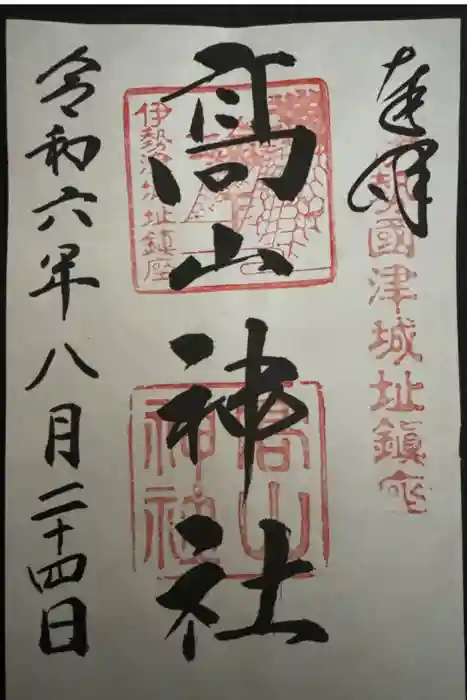 奉拝
勢國津城址鎮座
髙山神社
伊勢津城址鎮座
高山神社
令和六年八月二十四日